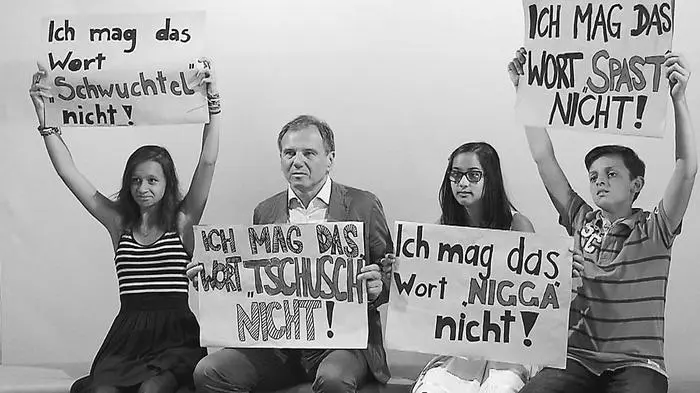 Ich mag das
Wort
„Schwuchtel“
nicht!
ICH MAG DAS
WORT „TSCHUSCH“
NICHT!
Ich mag das
Wort „NIGGA“
nicht!
ICH MAG DAS
WORT „SPAST“
NICHT!